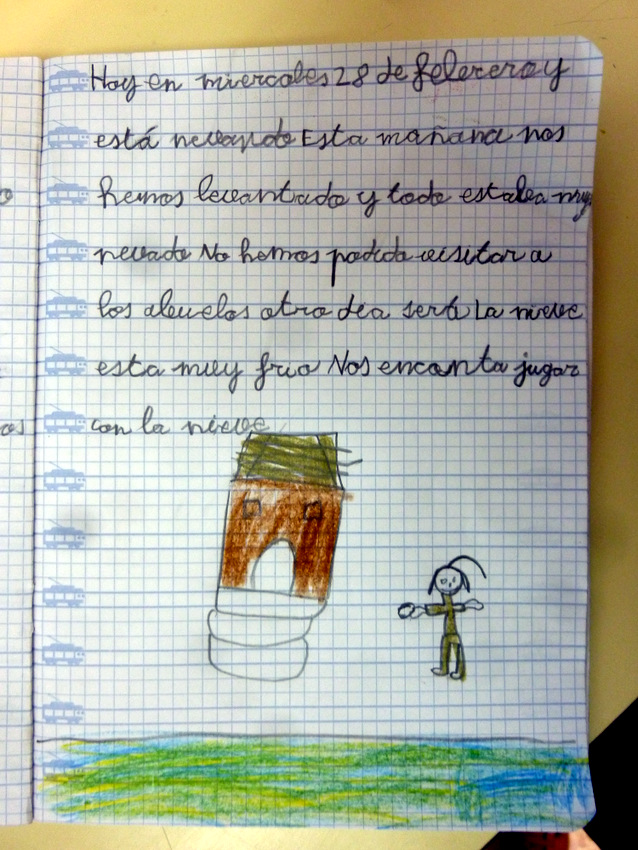 Hoy en miercoles 28 de febrero y
está nevando Esta mañana nos
hemos levantado y todo estaba muy
nevado No hemos podido visitar a
los abuelos otro dia será La nieve
esta muy frio Nos encanta jugar
con la nieve